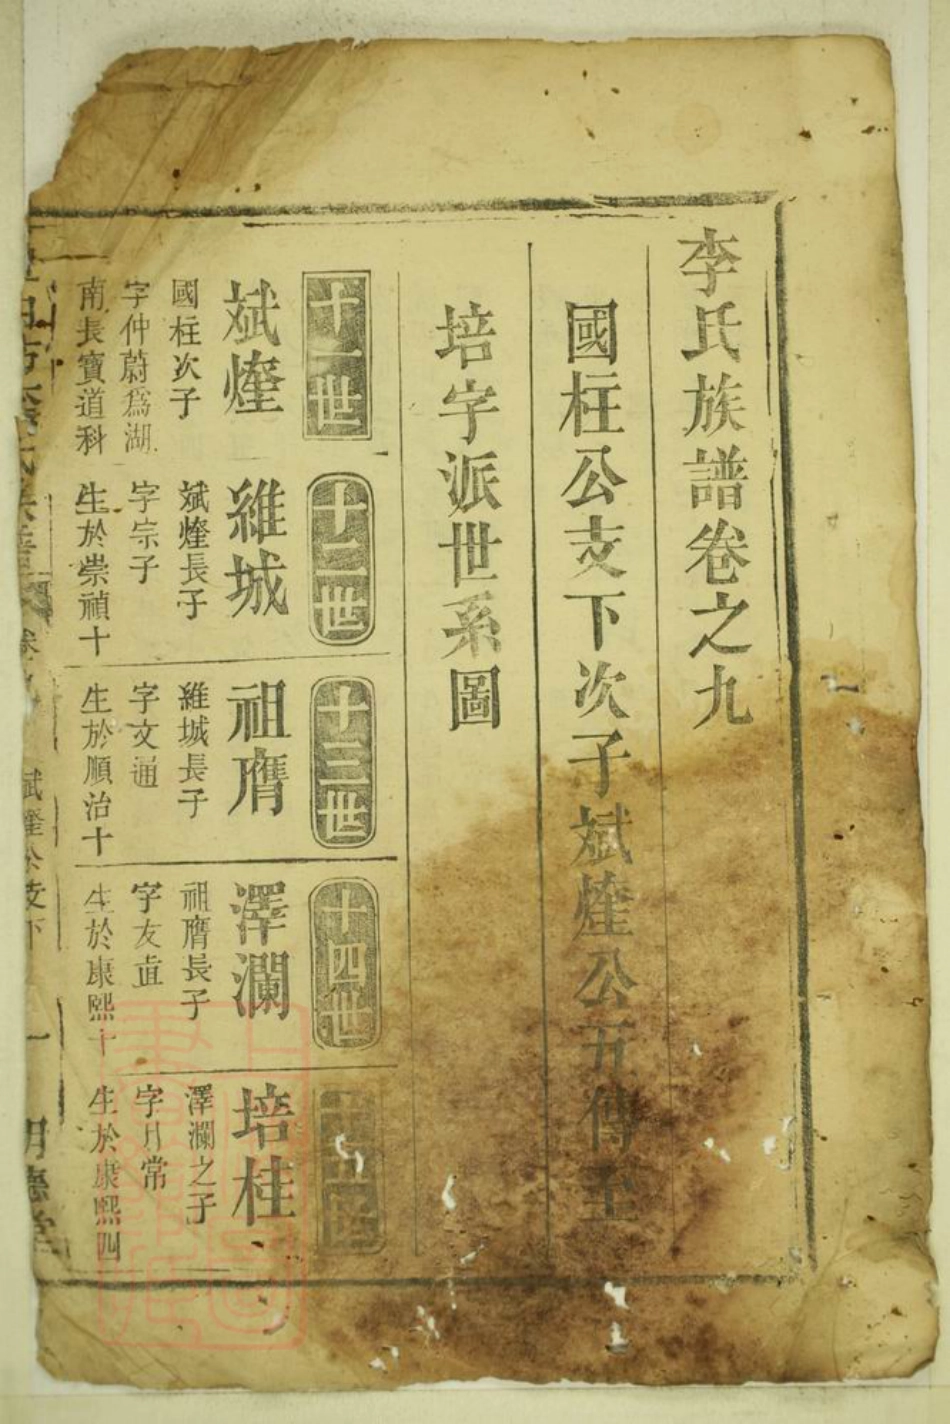 李氏族譜卷之九
國柱公支下次子斌煃公五傳至
培字派世系圖
十一世
斌煃
國柱次子
字仲蔚爲湖
南長寶道科
十二世
維城
斌煃長子
字宗子
生於崇禎十
十三世
祖膺
維城長子
字文通
生於順治十
十四世
澤瀾
祖膺長子
字友直
生於康熙十
十五世
培桂
澤瀾之子
字月常
生於康熙四
斌煃公支下
一
明德堂